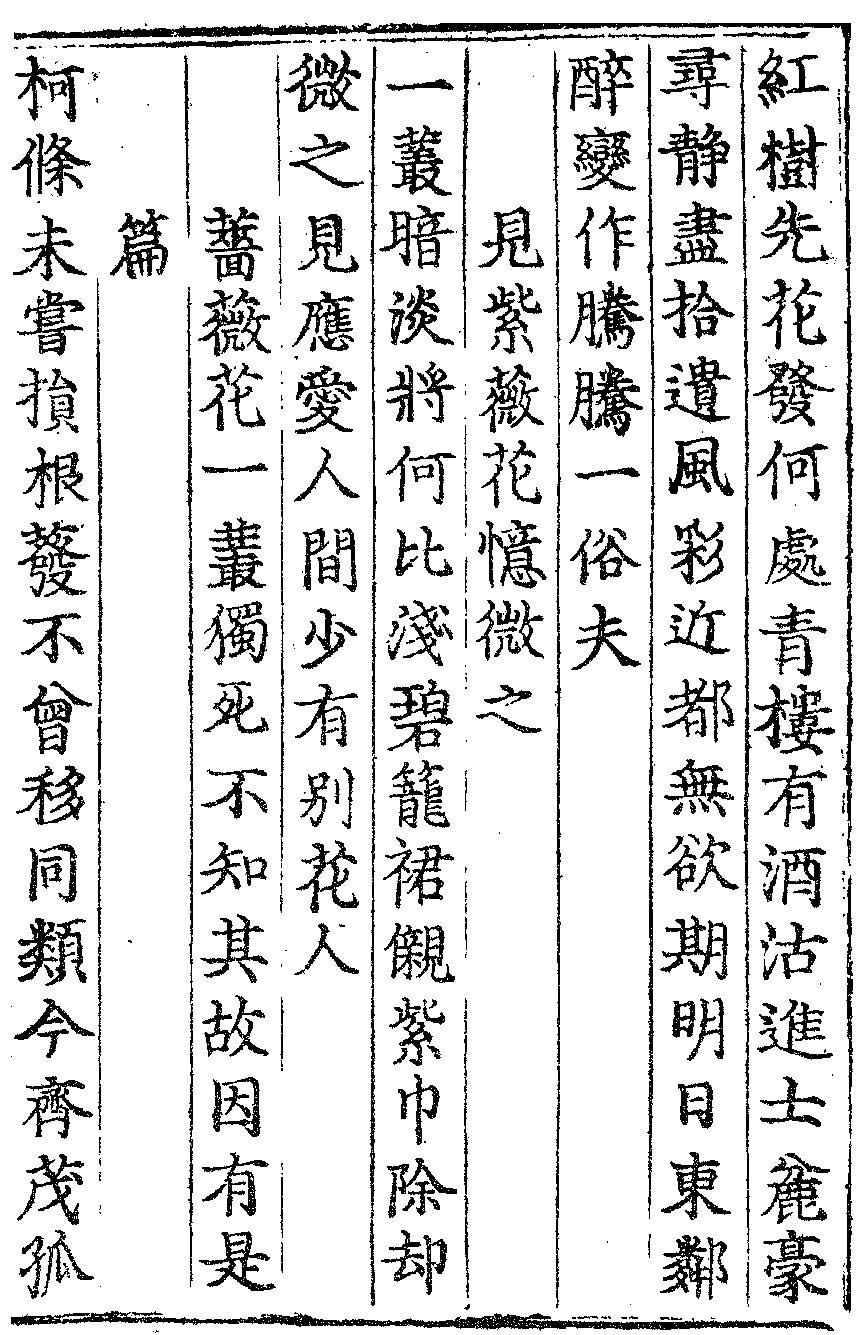 紅樹先花發何處青樓有酒沽進士麄豪
尋静盡拾遺風彩近都無欲期明日東鄰
醉變作騰騰一俗夫
見紫薇花憶微之
一叢暗淡將何比淺碧籠裙儭紫巾除却
微之見應愛人間少有别花人
薔薇花一叢獨死不知其故因有是
篇
柯條未嘗損根蕟不曾移同類今齊茂孤